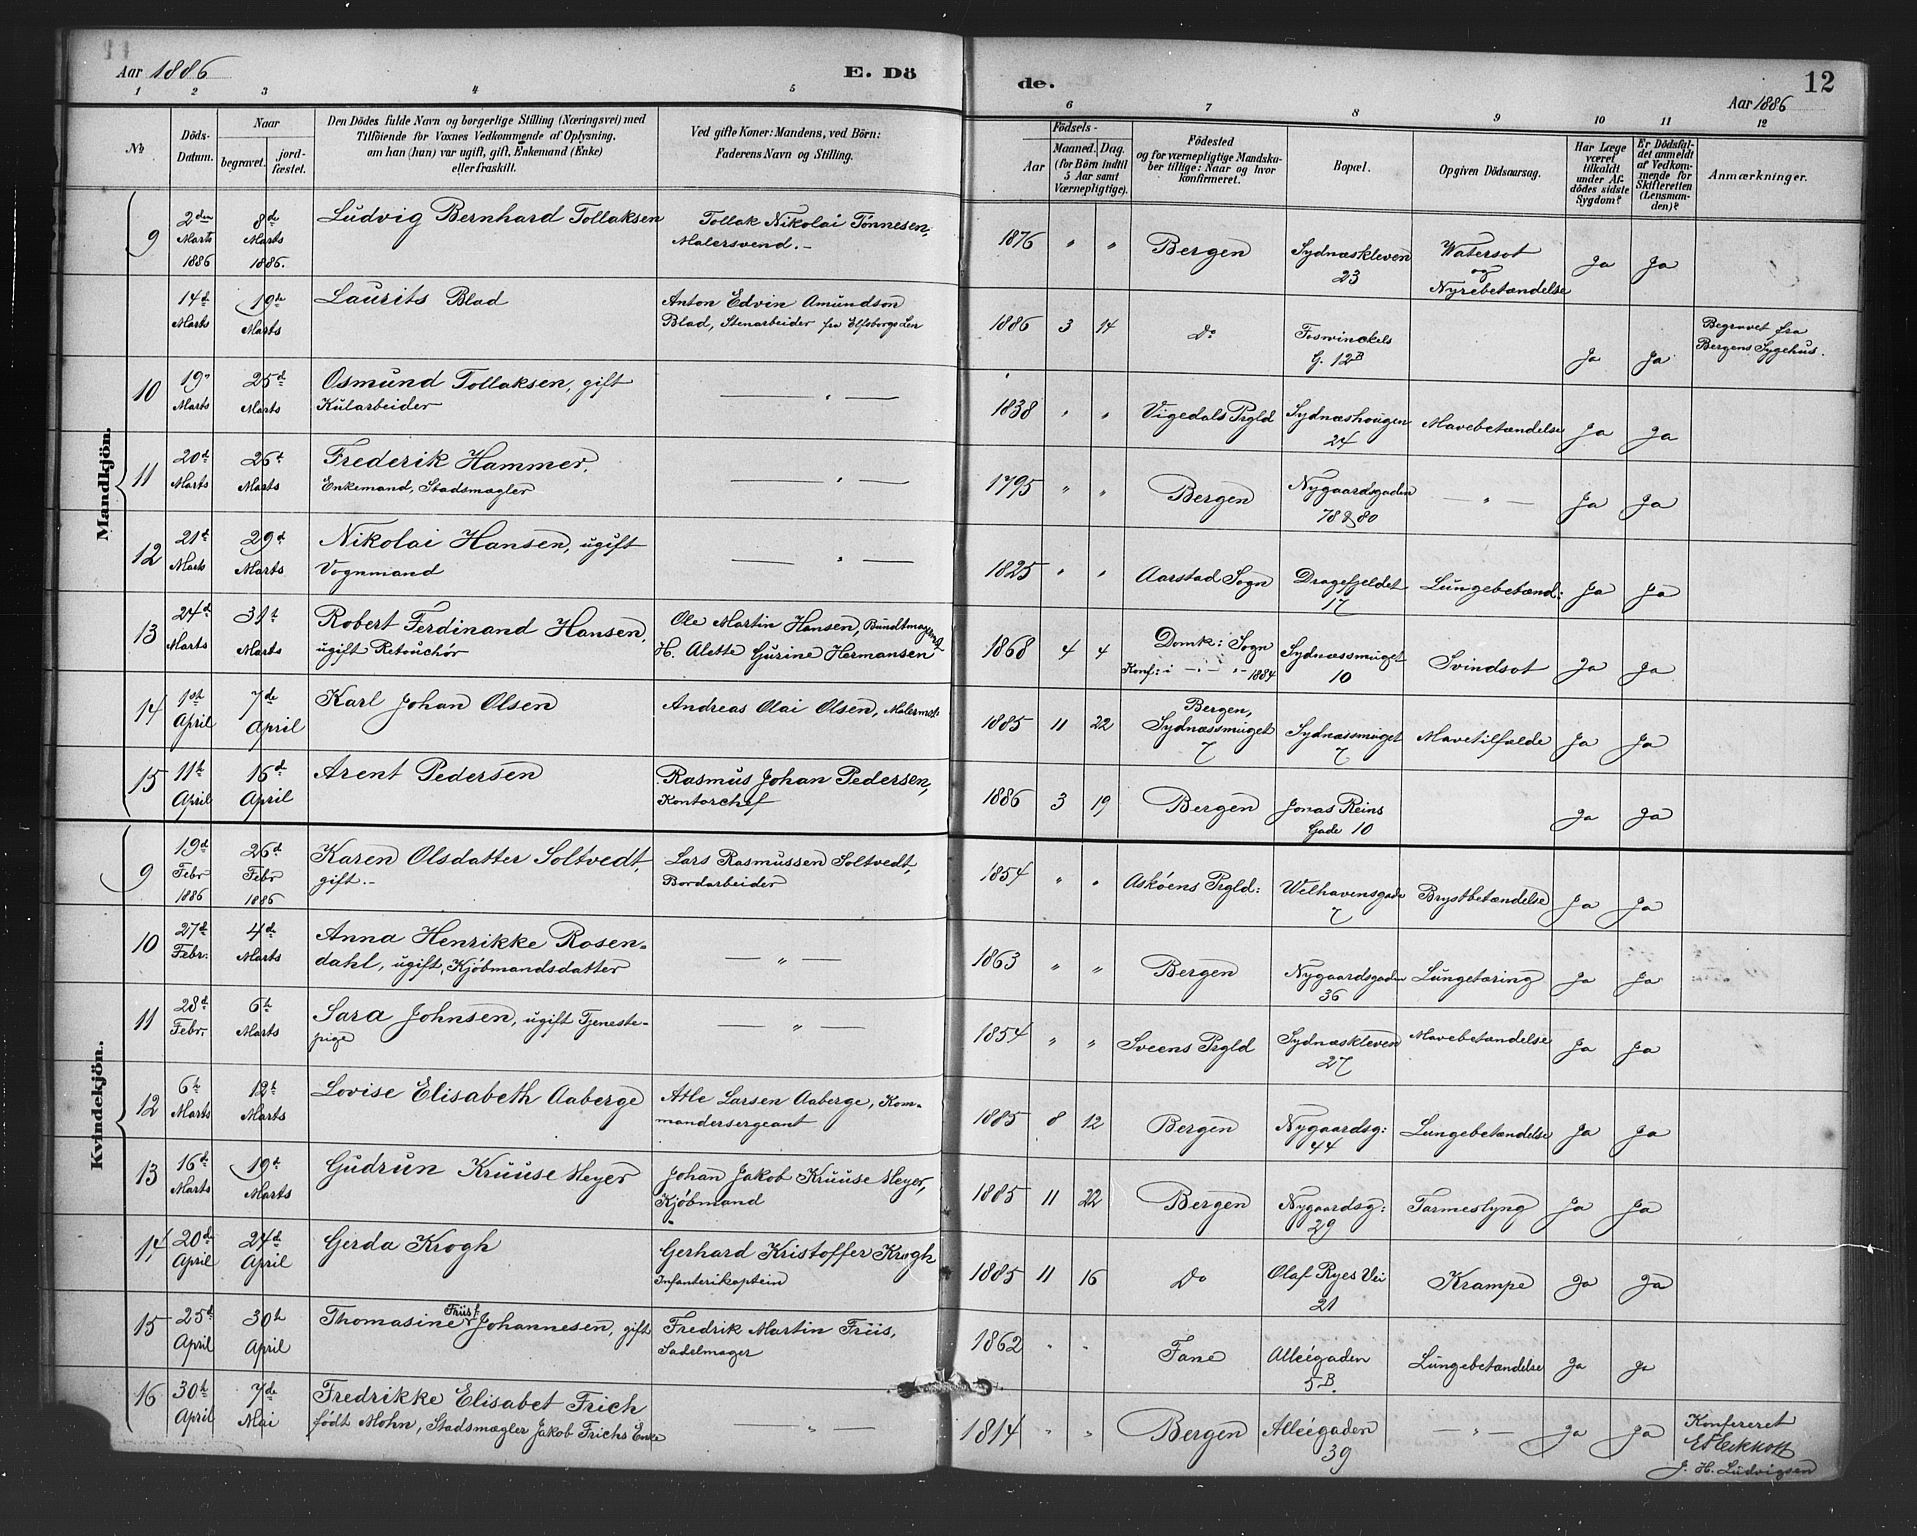 Aar 1886
E. Dö
de.
12
Aar 1886
1 2 3 4 5 6 7 8 9 10 11 12
No
Döds-Datum.
Naar
begravet.
jordfæstet.
Den Dödes fulde Navn og borgerlige Stilling (Næringsvei) med
Tilföiende for Voxnes Vedkommende af Oplysning,
om han (hun) var ugift, gift, Enkemand (Enke)
eller fraskilt.
Ved gifte Koner: Mandens, ved Börn:
Faderens Navn og Stilling.
Födsels-
Aar
Maaned. Dag.
(for Börn indtil
5 Aar samt
Værnepligtige).
Födested
og for værnepligtige Mandskaber tillige: Naar og hvor
konfirmeret.
Bopæl.
Opgiven Dödsaarsag.
Har Læge
været
tilkaldt
under Afdödes sidste
Sygdom?
Er Dödsfaldet anmeldt
af Vedkommende for
Skifteretten
(Lensmanden)?
Anmærkninger.
Mandkjön.
9 2den Marts 1886 8de Marts 1886. Ludvig Bernhard Tollaksen Tollak Nikolai Tønnesen, Malersvend.- 1876 " " Bergen Sydnæskleven 23 Watersot og Nyrebetændelse Ja Ja
14d Marts 19de Marts Laurits Blad Anton Edvin Amundson Blad, Stenarbeider fra Elfsborgs Len 1886 3 14 Do Foswinckels G. 12B Ja Ja Begravet fra Bergens Sygehus.
10 19" Marts 25d Marts Osmund Tollaksen, gift Kularbeider — " — 1838 " " Vigedals Prgld Sydnæshougen 24 Mavebetændelse Ja Ja
11 20d Marts 26t Marts Frederik Hammer, Enkemand, Stadsmægler — " — 1795 " " Bergen Nygaardsgaden 78 & 80 — " — Ja Ja
12 21d Marts 29d Marts Nikolai Hansen, ugift Vognmand — " — 1825 " " Aarstad Sogn Dragefjeldet 17 Lungebetænd: Ja Ja
13 24d Marts 31t Marts Robert Ferdinand Hansen, ugift Retouchør Ole Martin Hansen, Bundtmager H. Alette Gurine Hermansen 1868 4 4 Domk: Sogn Konf: i — " — 1884 Sydnæssmuget 10 Svindsot Ja Ja
14 1st April 7de April Karl Johan Olsen Andreas Olai Olsen, Malermest. 1885 11 22 Bergen, Sydnæssmuget 7 Sydnæssmuget 7 Mavetilfælde Ja Ja
15 11th April 16d April Arent Pedersen Rasmus Johan Pedersen, Kontorchef 1886 3 19 Bergen Jonas Reins Gade 10 Ja Ja
Kvindekjön.
9 19d Febr 1886 26d Febr 1886 Karen Olsdatter Soltvedt, gift.- Lars Rasmussen Soltvedt, Bordarbeider 1854 " " Askøens Prgld: Welhavensgade 7 Brystbetændelse Ja Ja
10 27d Febr. 4de Marts Anna Henrikke Rosendahl, ugift, Kjøbmandsdatter — " — 1863 " " Bergen Nygaardsgaden 36 Lungetæring Ja Ja
11 28d Febr. 6t Marts Sara Johnsen, ugift Tjenestepige — " — 1854 " " Sveens Prgld Sydnæskleven 27 Mavebetændelse Ja Ja
12 6t Marts 12t Marts Lovise Elisabeth Aaberge Atle Larsen Aaberge, Kommandersergeant 1885 8 12 Bergen Nygaardsg: 44 Lungebetændelse Ja Ja
13 16d Marts 19d Marts Gudrun Kruuse Meyer Johan Jakob Kruuse Meyer, Kjøbmand 1885 11 22 Bergen Nygaardsg: 29 Tarmeslyng Ja Ja
14 20de April 24d April Gerda Krogh Gerhard Kristoffer Krogh Infanterikaptein 1885 11 16 Do Olaf Ryes Vei 21 Krampe Ja Ja
15 25d April 30th April Thomasine Friis f. Johannesen, gift Fredrik Martin Friis, Sadelmager 1862 " " Fane Alleégaden 5B. Lungebetændelse Ja Ja
16 30t April 7de Mai Fredrikke Elisabet Frich født Mohn, Stadsmægler Jakob Frichs Enke — " — 1814 " " Bergen Alleégaden 39 — " — Ja Ja Konfereret
E Eckhoff
J. H. Ludvigsen